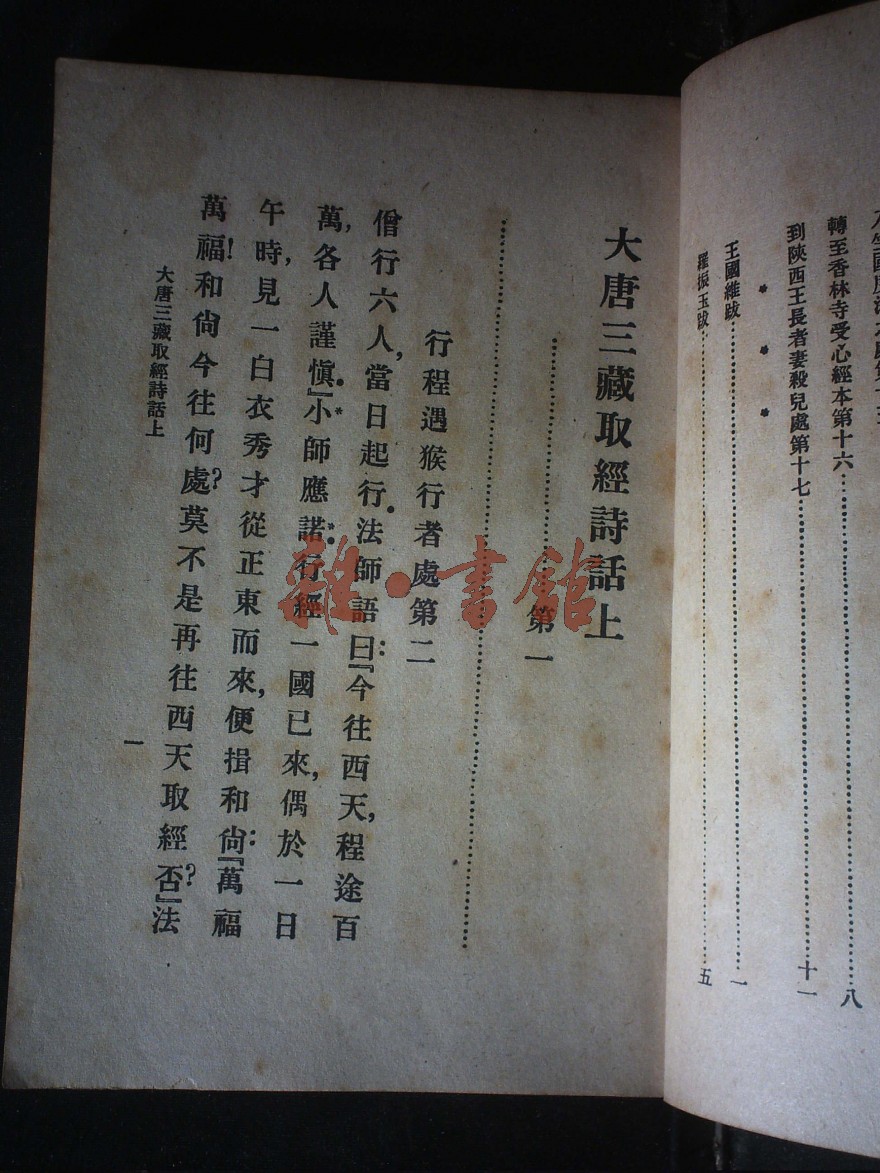 入竺國度海之處第十五
轉至香林寺受心經本第十六…八
到陝西王長者妻殺兒處第十七…十一
* * *
王國維跋…一
羅振玉跋…五
大唐三藏取經詩話上
…第一
…
行程遇猴行者處第二
僧行六人，當日起行。法師語曰：『今往西天，程途百
萬，各人謹愼。』小師應諾。行經一國已來，偶於一日
午時，見一白衣秀才從正東而來，便揖和尙：『萬福
萬福！和尙今往何處？莫不是再往西天取經否？』法
大唐三藏取經詩話上
一
雜·書館